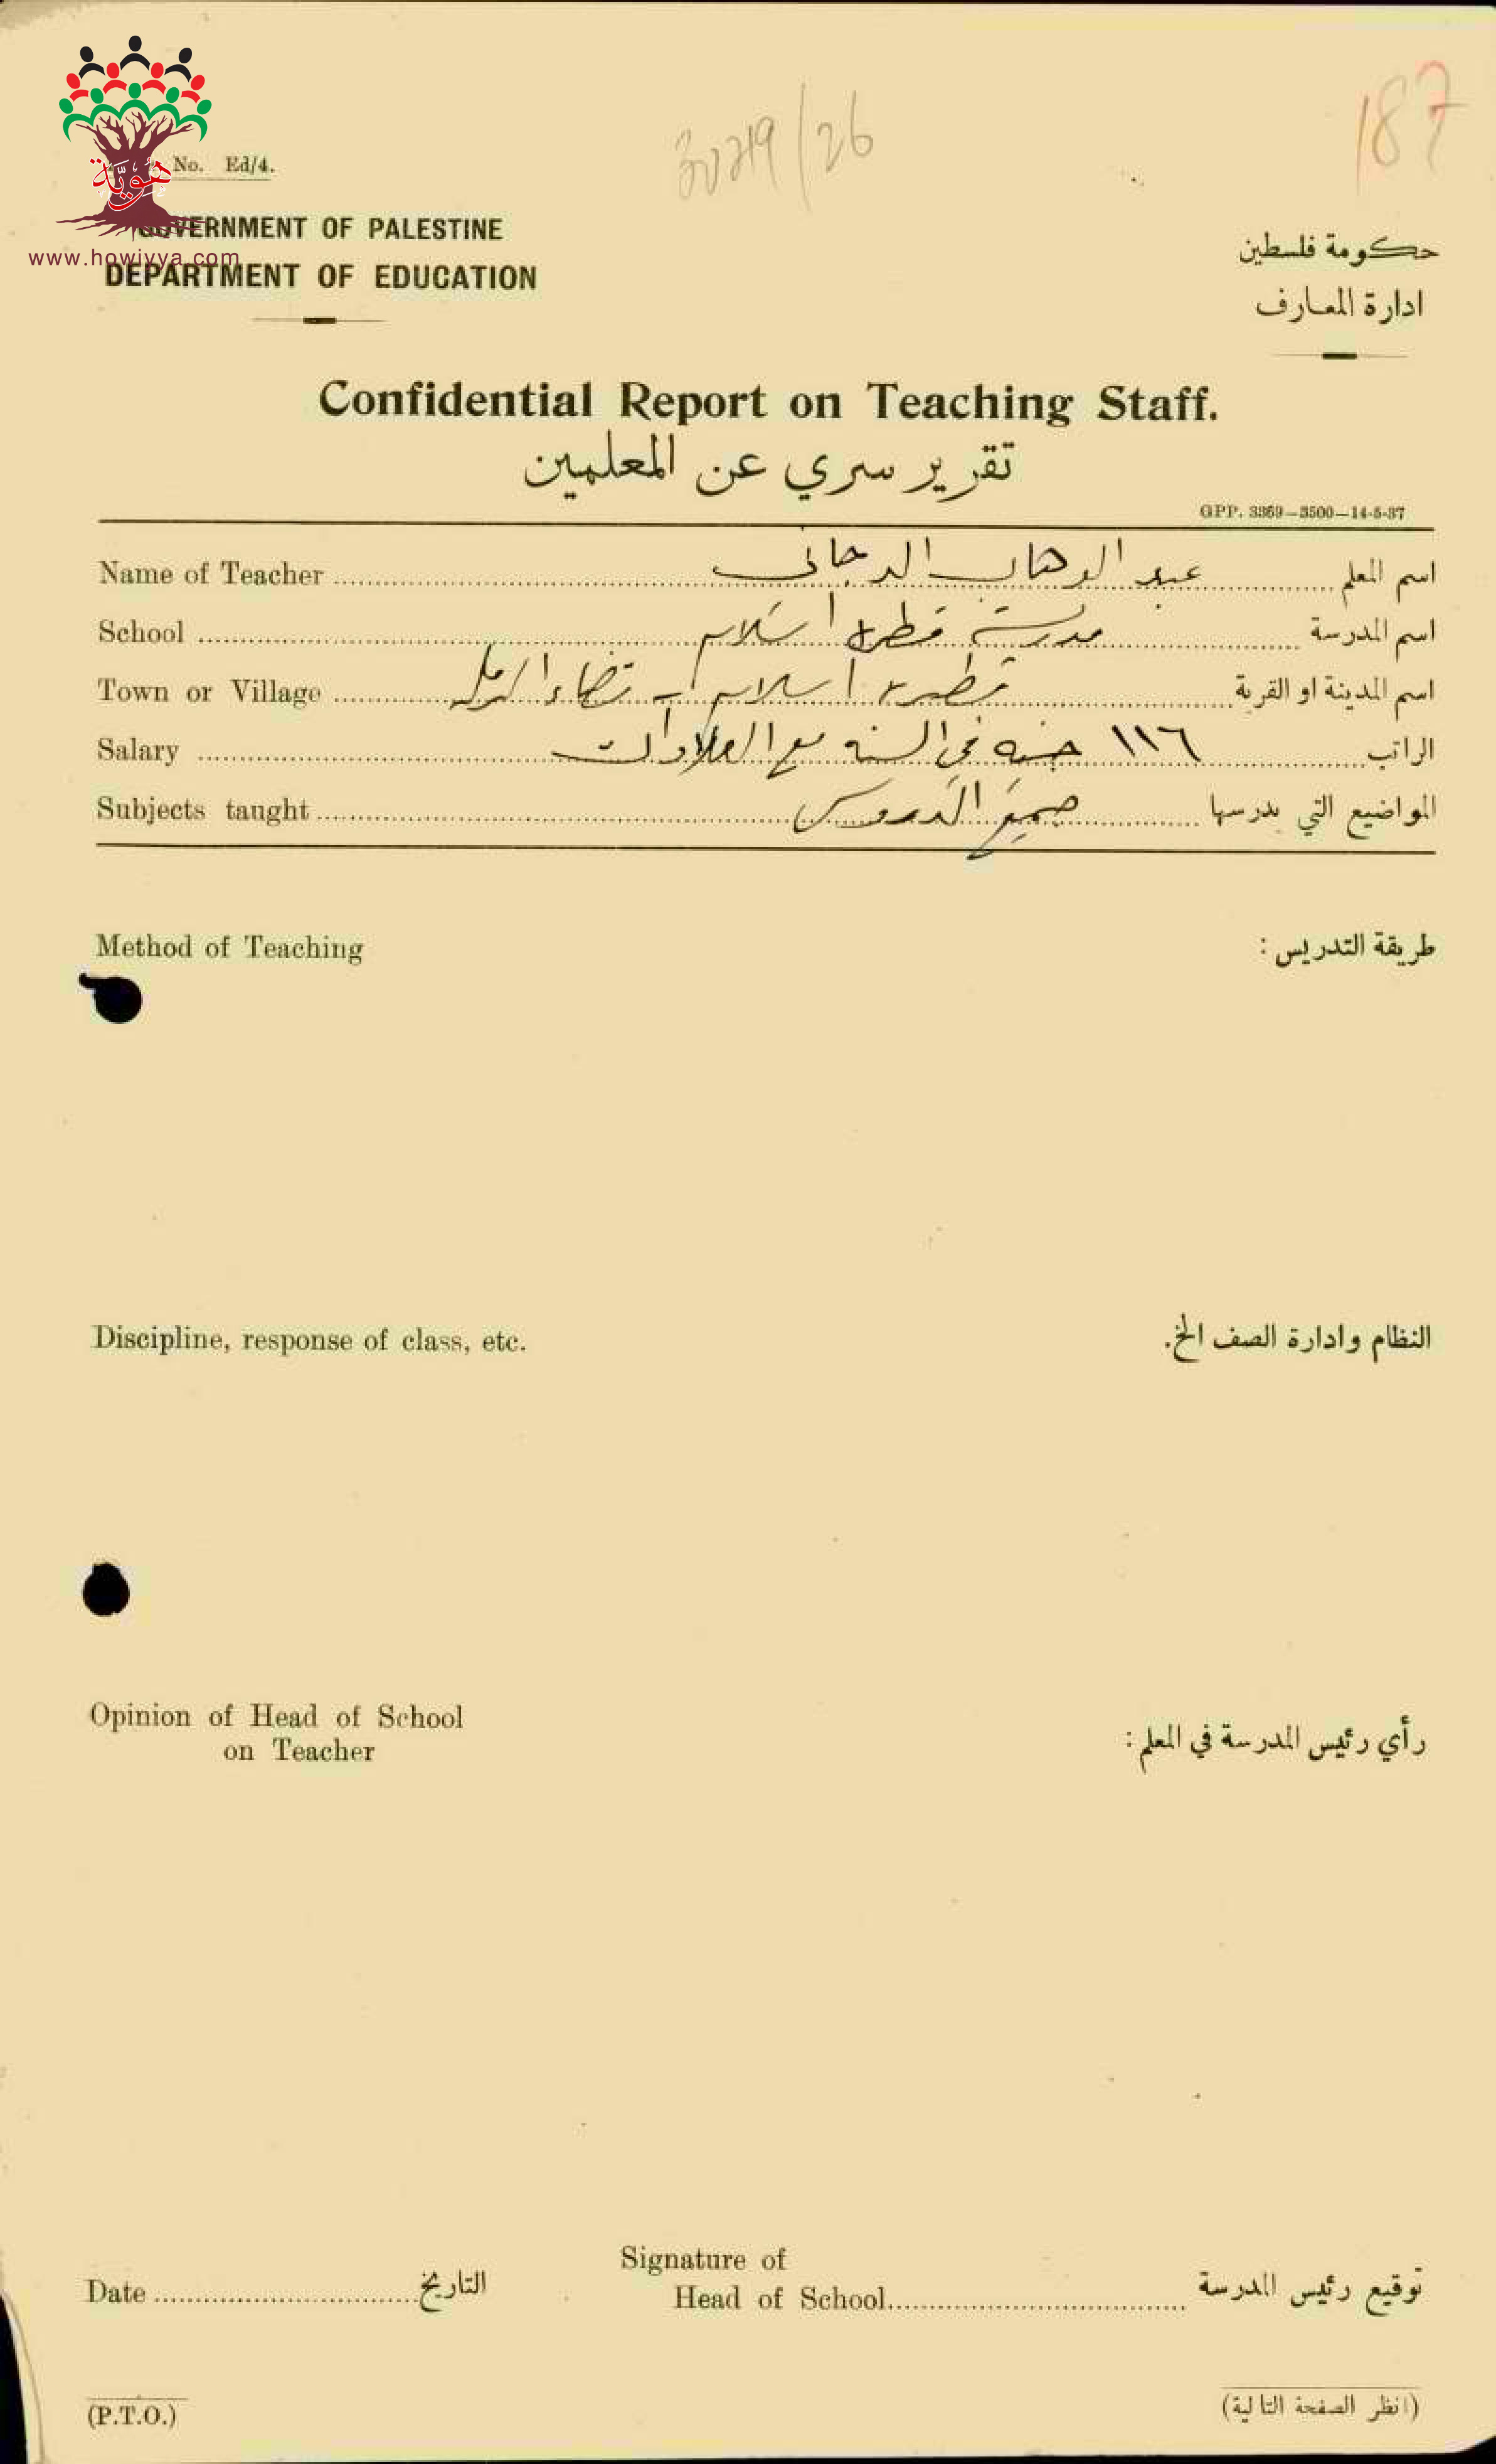 187
/26
هويّة
No. Ed/4.
GOVERNMENT OF PALESTINE
حكومة فلسطين
www.howiyya.com
DEPARTMENT OF EDUCATION
ادارة المعارف
Confidential Report on Teaching Staff.
تقرير سري عن المعلمين
GPP. 3369—3500—14-5-37
Name of Teacher عبد الوهاب الدجاني اسم المعلم
School مدرسة قطره اسلام اسم المدرسة
Town or Village قطره اسلام – قضاء الرمله اسم المدينة او القرية
Salary ١١٦ جنيه في السنه مع العلاوات الراتب
Subjects taught جميع الدروس المواضيع التي يدرسها
Method of Teaching طريقة التدريس :
Discipline, response of class, etc. النظام وادارة الصف الخ.
Opinion of Head of School
on Teacher رأي رئيس المدرسة في المعلم :
Signature of
Date التاريخ Head of School توقيع رئيس المدرسة
(P.T.O.) (انظر الصفحة التالية)